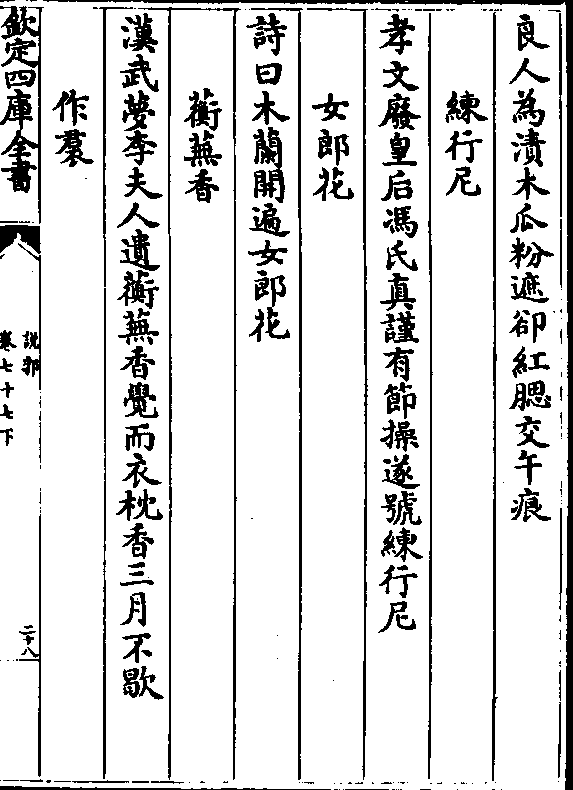 良人為漬木瓜粉遮卻紅腮交午痕
練行尼
孝文廢皇后馮氏真謹有節操遂號練行尼
女郎花
詩曰木蘭開遍女郎花
蘅蕪香
漢武夢李夫人遺蘅蕪香覺而衣枕香三月不歇
作裙
欽定四庫全書
說郛
卷七十七下
二十八